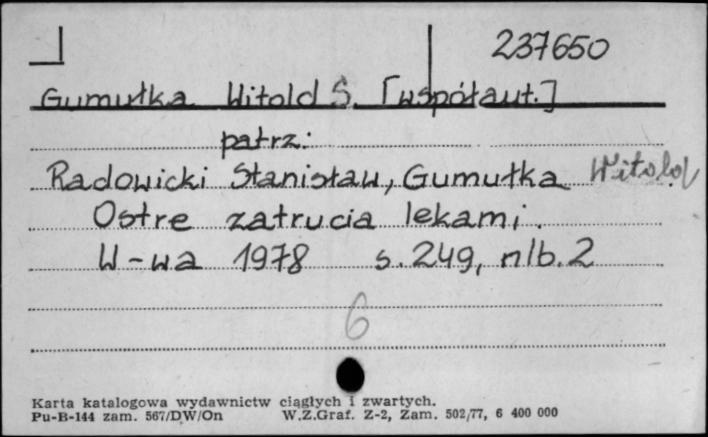 237650
Gumułka Witold S. [współaut.]
patrz:
Radowicki Stanisław, Gumułka Witold
Ostre zatrucia lekami.
W-wa 1978 s. 249, nlb. 2
6
Karta katalogowa wydawnictw ciągłych i zwartych.
Pu-B-144 zam. 567/DW/On W.Z.Graf. Z-2, Zam. 502/77, 6 400 000